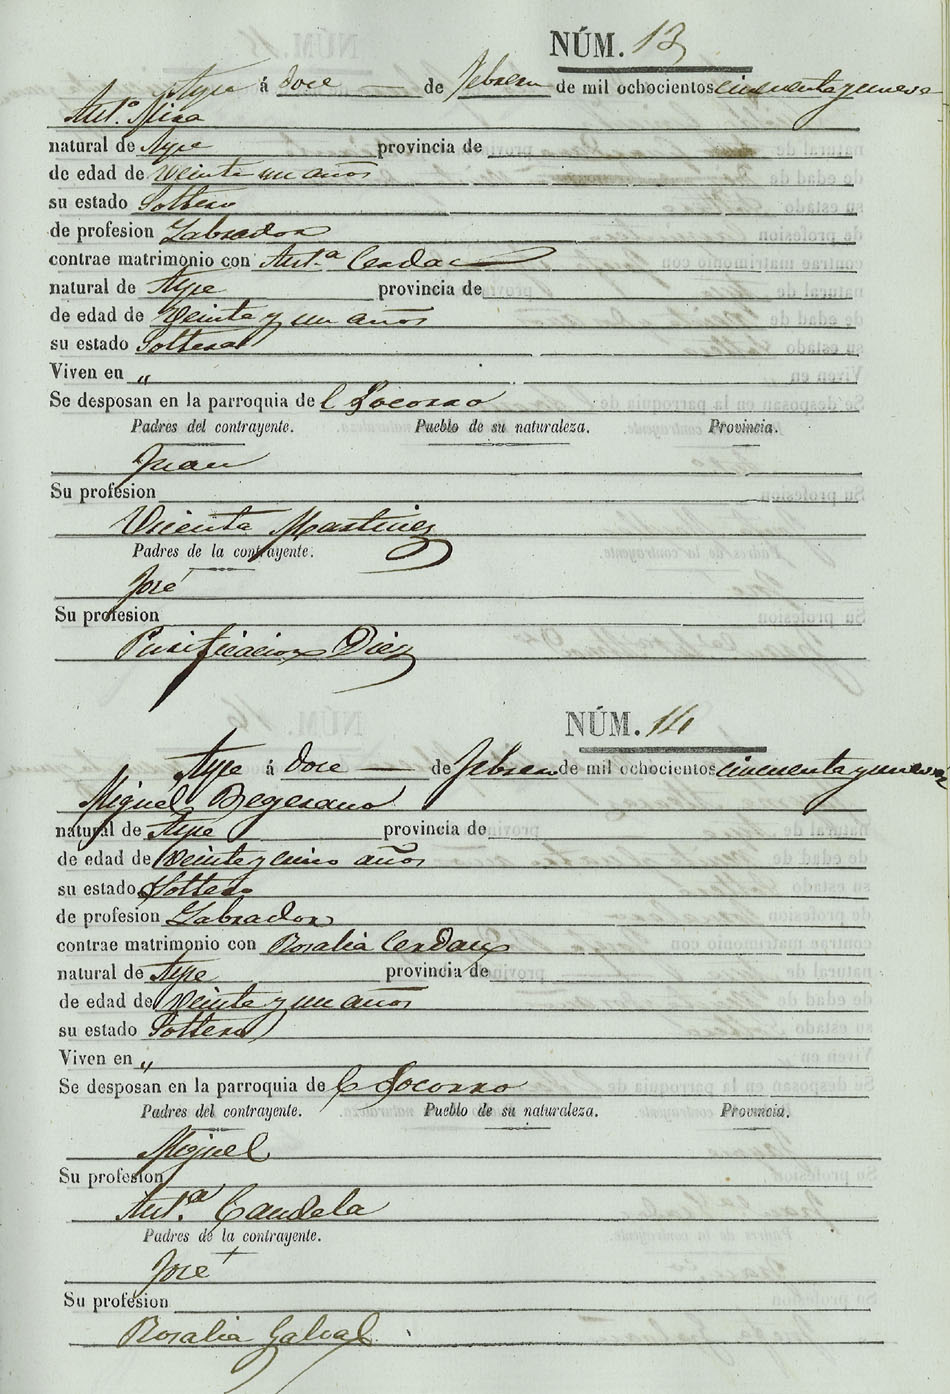 NÚM. 13
Aspe á doce de Febrero de mil ochocientos cincuenta y nueve
Ant.º Mira
natural de Aspe provincia de
de edad de veinte un años
su estado Soltero
de profesion Labrador
contrae matrimonio con Ant.ª Cerdan
natural de Aspe provincia de
de edad de Veinte y un años
su estado Soltera
Viven en „
Se desposan en la parroquia del Socorro
Padres del contrayente. Pueblo de su naturaleza. Provincia.
Juan
Su profesion
Vicenta Martinez
Padres de la contrayente.
José
Su profesion
Purificacion Diez
NÚM. 14
Aspe á doce de Febrero de mil ochocientos cincuenta y nueve
Miguel Begerano
natural de Aspe provincia de
de edad de Veinte y cinco años
su estado Soltero
de profesion Labrador
contrae matrimonio con Rosalia Cerdan
natural de Aspe provincia de
de edad de Veinte y un años
su estado Soltera
Viven en „
Se desposan en la parroquia de l Socorro
Padres del contrayente. Pueblo de su naturaleza. Provincia.
Miguel
Su profesion
Ant.ª Candela
Padres de la contrayente.
José
Su profesion
Rosalia